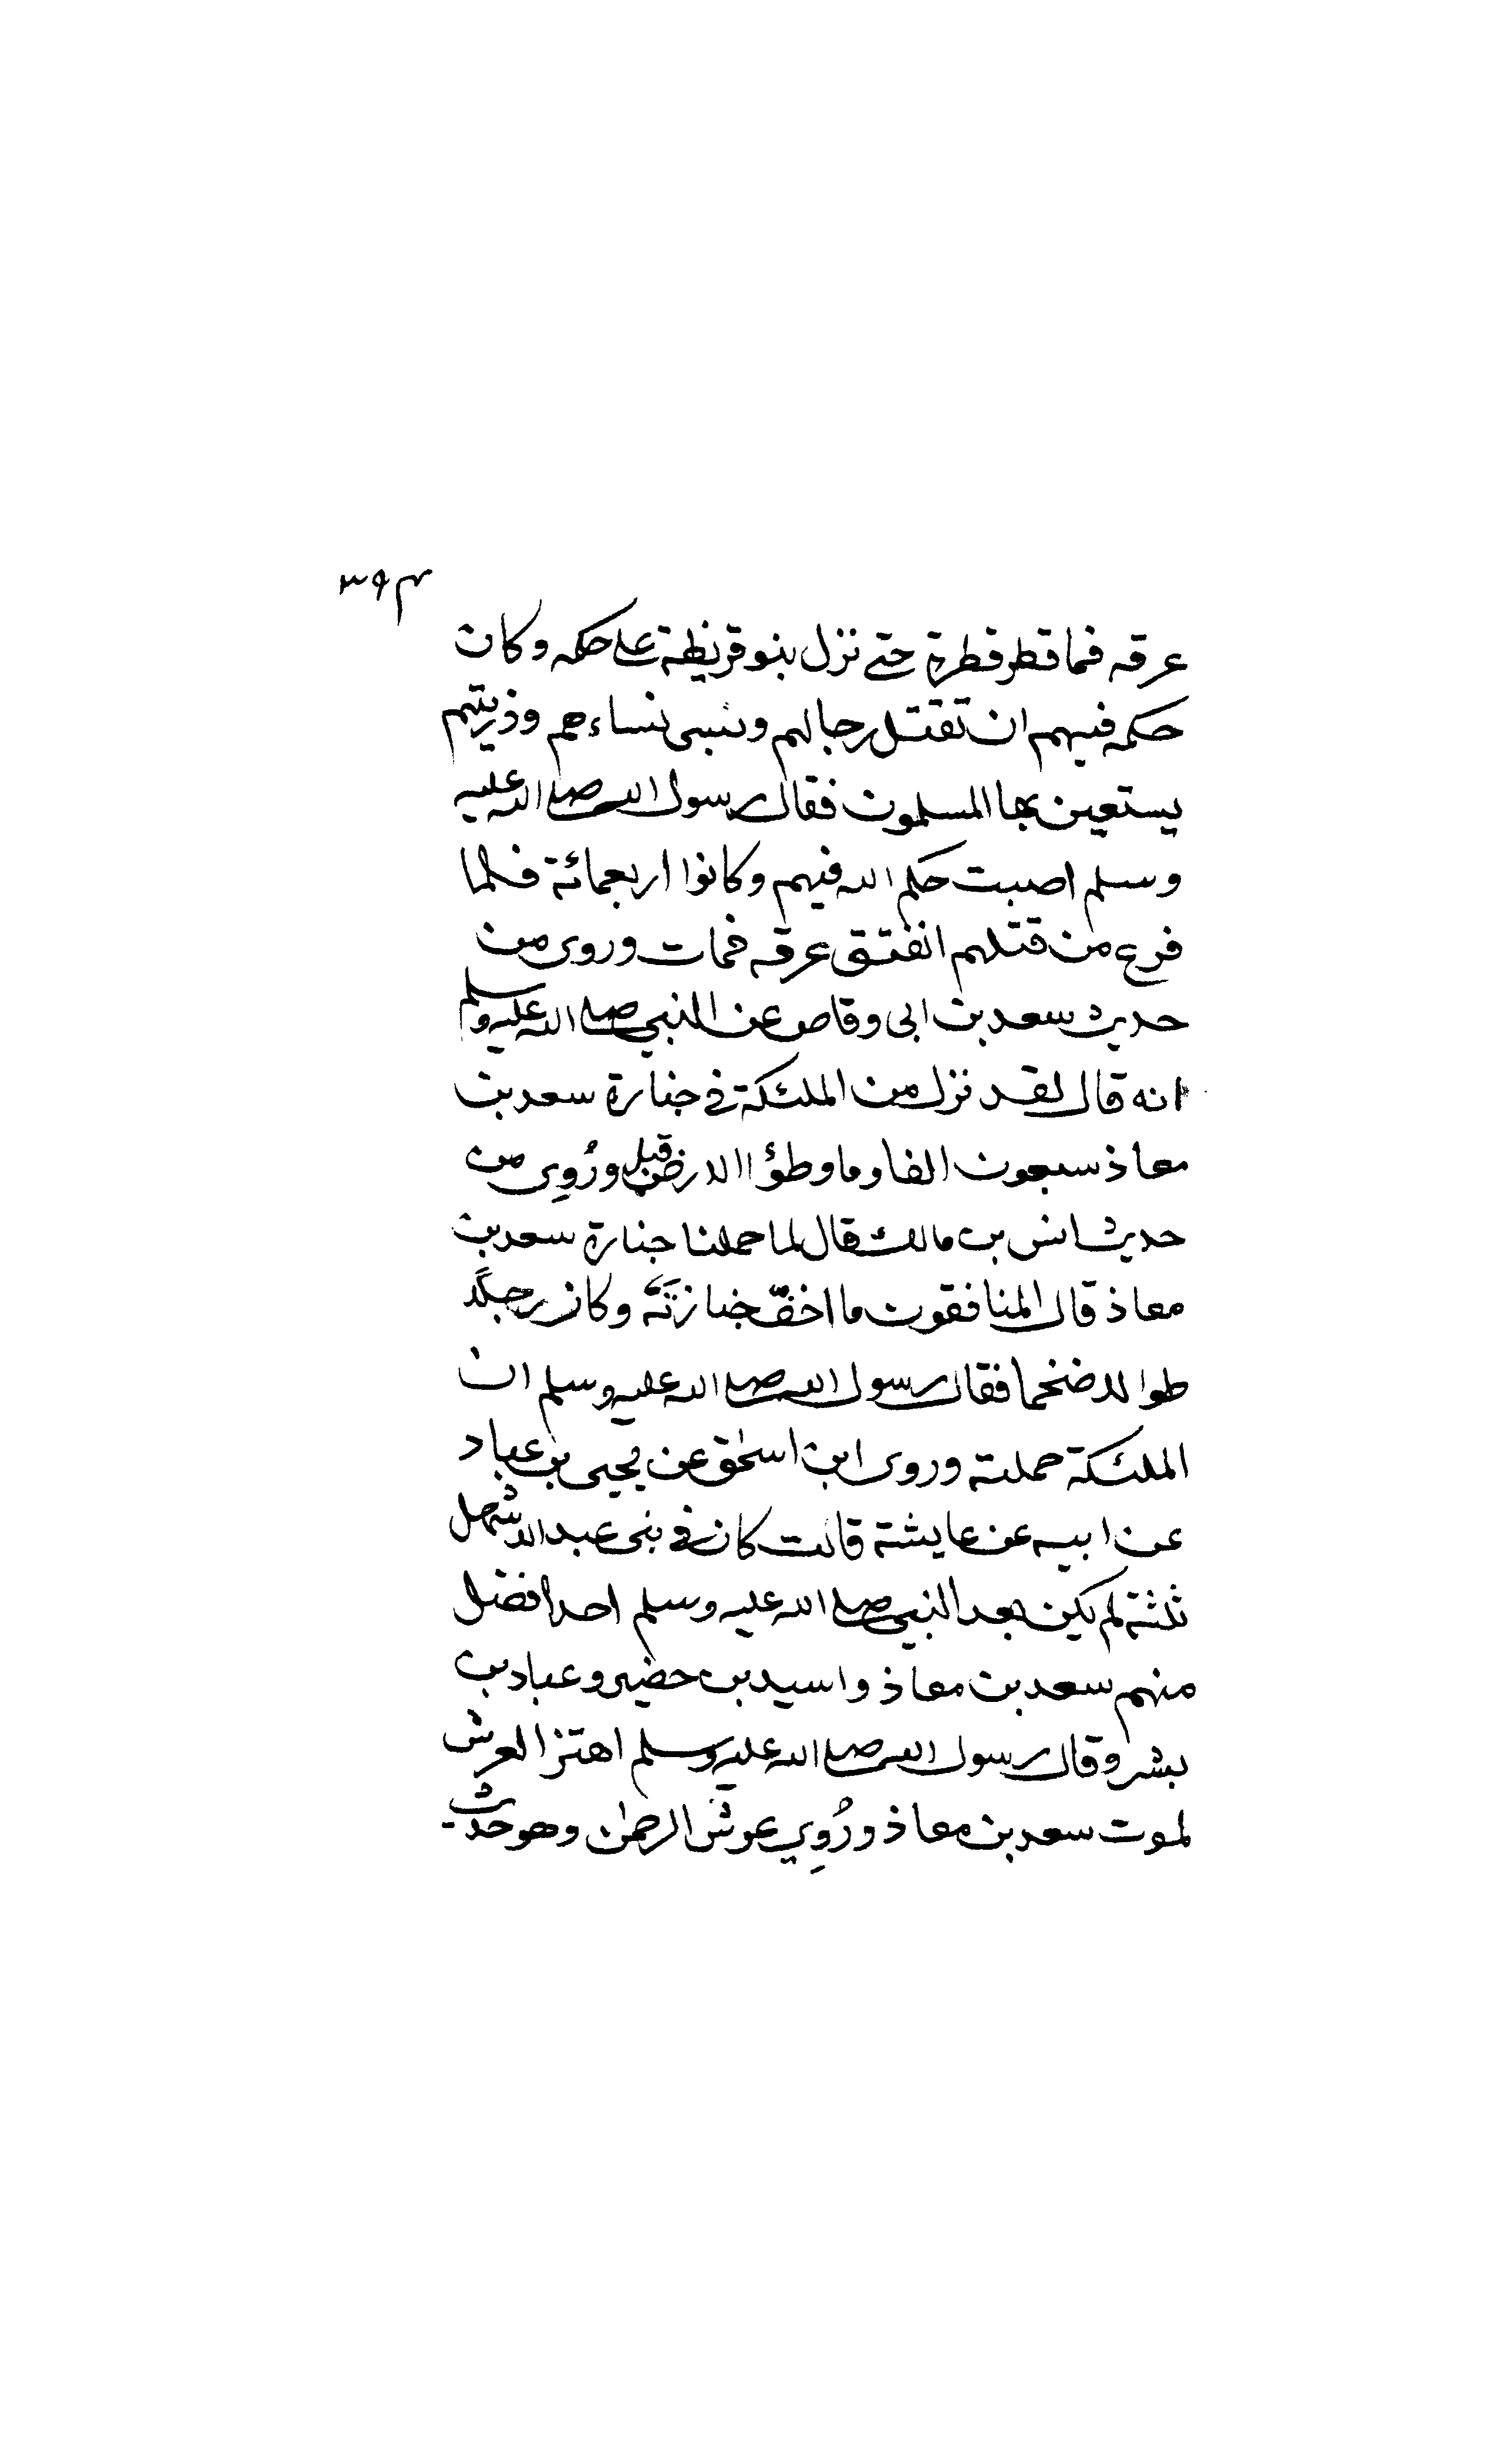 عرقه فما قطر قطرة حتى نزل بنو قريظة على حكمه وكان
حكمه فيهم ان تقتل رجالهم وتسبى نساءهم وذريتهم
يستعين بها المسلمون فقال رسول الله صلى الله عليه
وسلم اصبت حكم الله فيهم وكانوا اربعمائة فلما
فرغ من قتلهم انفتق عرقه فمات وروى من
حديث سعد بن ابى وقاص عن النبي صلى الله عليه وسلم
انه قال لقد نزل من الملئكة في جنازة سعد بن
معاذ سبعون الفا وما وطؤا الارض قبل ورُوِى من
حديث انس بن مالك قال لما حملنا جنازة سعد بن
معاذ قال المنافقون ما اخفّ جنازتَهُ وكان رجلًا
طوالا ضخما فقال رسول الله صلى الله عليه وسلم ان
الملئكة حملته وروى ابن اسحٰق عن يحيى بن عباد
عن ابيه عن عايشة قالت كان في بنى عبد الاشهل
ثلثة لم يكن بعد النبي صلى الله عليه وسلم احد افضل
منهم سعد بن معاذ واسيد بن حضير وعباد بن
بشر وقال رسول الله صلى الله عليه وسلم اهتز العرش
لموت سعد بن معاذ ورُوِي عرش الرحمٰن وهو حديث